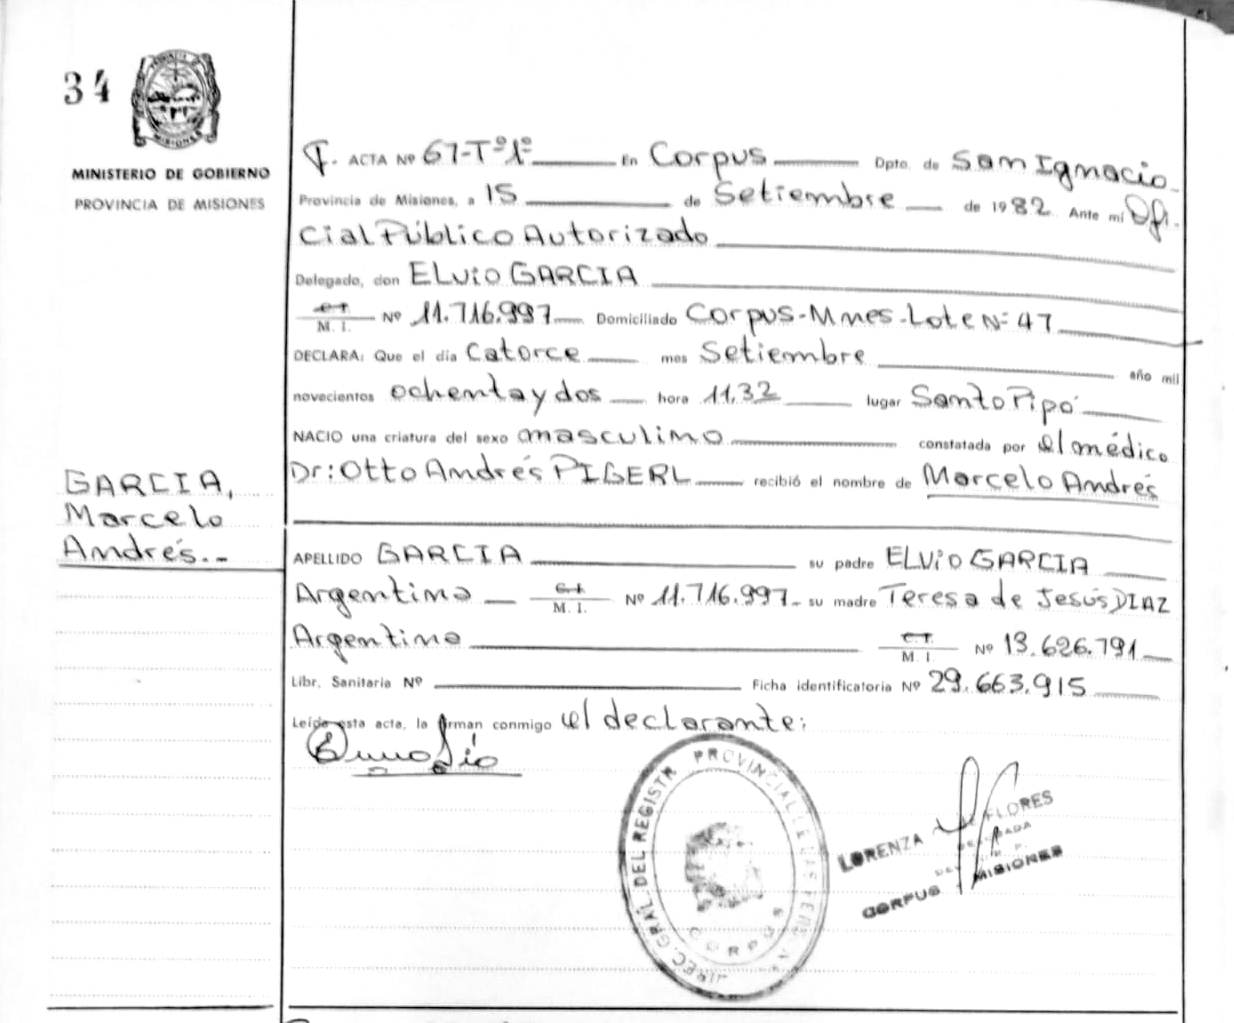 34
MINISTERIO DE GOBIERNO
PROVINCIA DE MISIONES
GARCIA,
Marcelo
Andrés.-
ACTA Nº 67-Tº1º En Corpus Dpto. de San Ignacio
Provincia de Misiones, a 15 de Setiembre de 1982 Ante mí Ofi.
cial Público Autorizado
Delegado, don ELViO GARCIA
M. I. Nº 11.716.997 Domiciliado Corpus-Mnes-Lote Nº 47
DECLARA: Que el día Catorce mes Setiembre año mil
novecientos ochenta y dos hora 11,32 lugar Santo Pipó
NACIO una criatura del sexo masculino constatada por el médico
Dr: Otto Andrés PIGERL recibió el nombre de Marcelo Andrés
APELLIDO GARCIA su padre ELViO GARCIA
Argentino M. I. Nº 11.716.997- su madre Teresa de Jesús DIAZ
Argentina M. I. Nº 13.626.791
Libr. Sanitaria Nº Ficha identificatoria Nº 29.663.915
Leída esta acta, la firman conmigo el declarante:
DIREC. GRAL. DEL REGISTR PROVINCIAL DE LAS PERS
CORPUS
LORENZA FLORES
CORPUS MISIONES